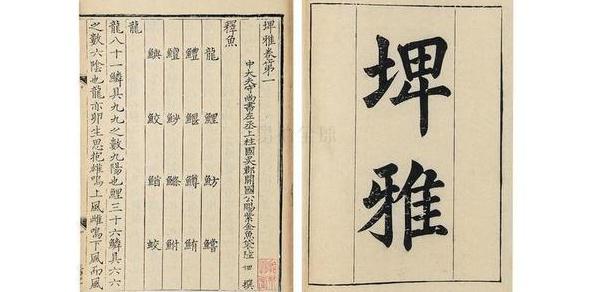 埤雅
埤雅卷第一
中大夫守尚書左丞上柱國吳郡開國公賜紫金魚袋陸 佃 撰
釋魚
龍 鯉 魴 鱨
鱧 鰋 鱒 鮪
鱣 魦 鰷 鮒
鱮 鮫 鰌 蛟
龍
龍八十一鱗具九九之數九陽也鯉三十六鱗具六六
之數六陰也龍亦卵生思抱雄鳴上風雌鳴下風而風